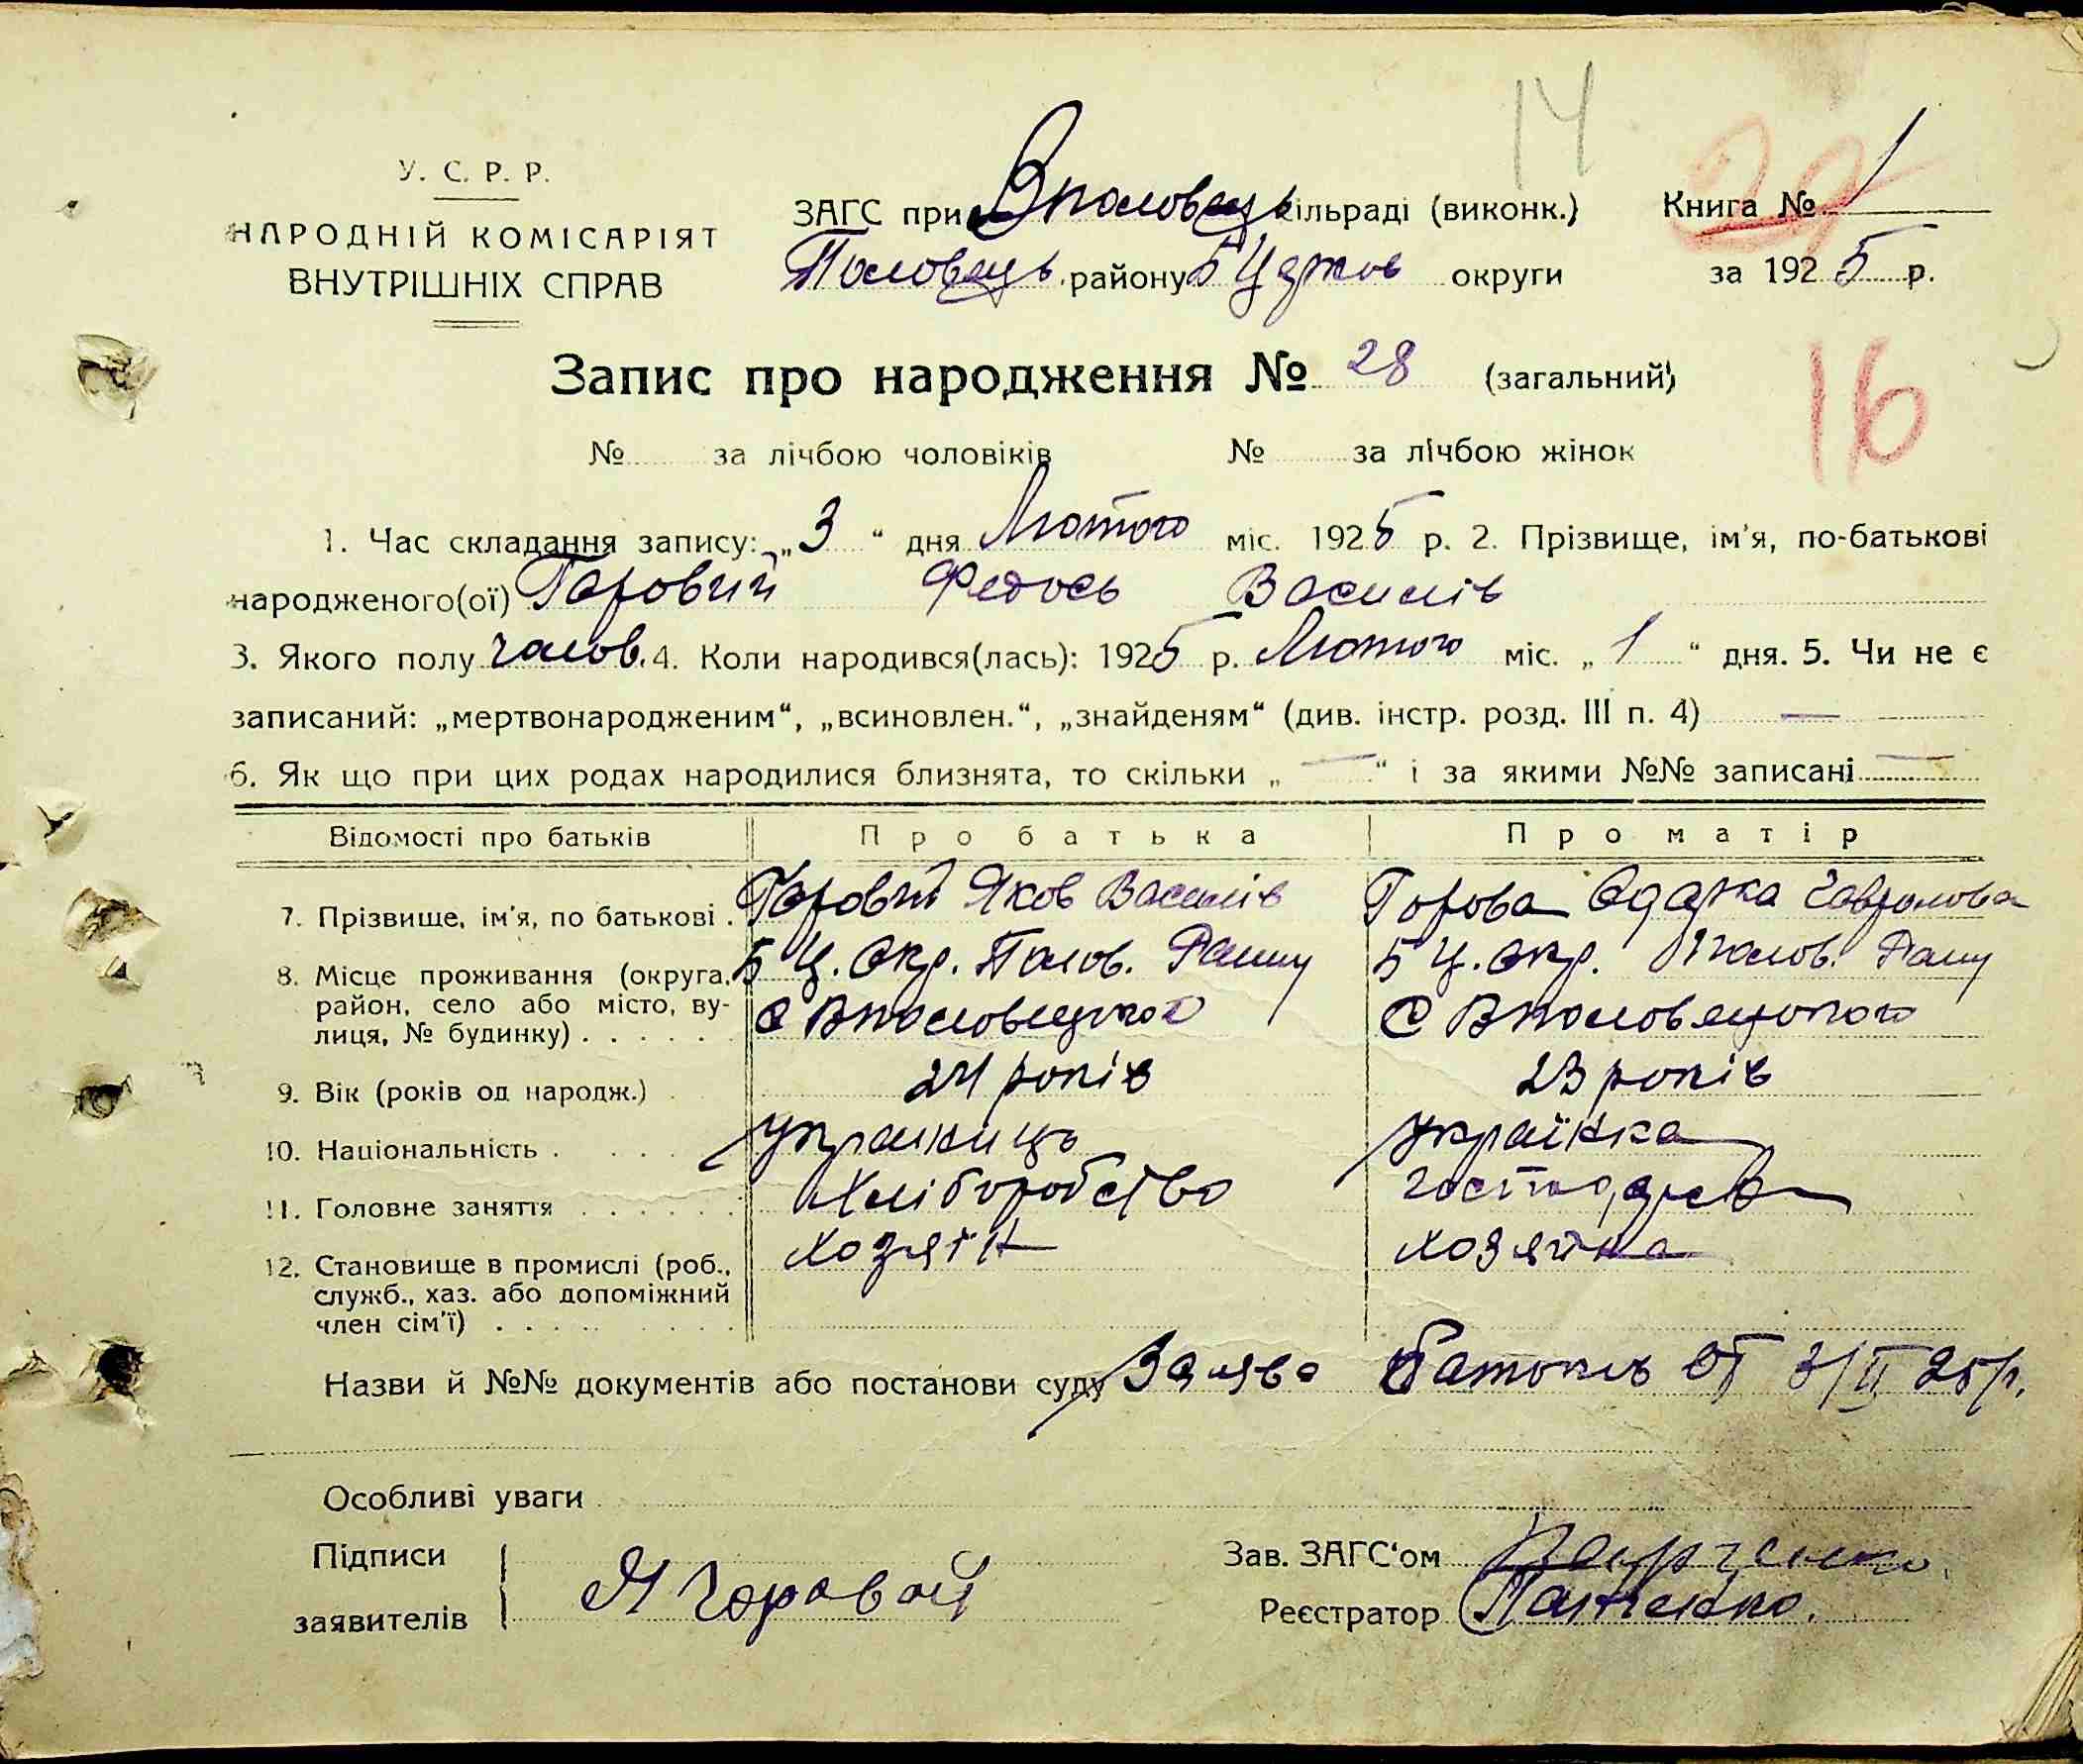 14
У. С. Р. Р.
НАРОДНІЙ КОМІСАРІЯТ
ВНУТРІШНІХ СПРАВ
ЗАГС при Вполовец сільраді (виконк.)
Половець району БЦерков округи
Книга № 1
за 1925 р.
Запис про народження № 28 (загальний)
16
№ за лічбою чоловіків № за лічбою жінок
1. Час складання запису: „3“ дня Лютого міс. 1925 р. 2. Прізвище, ім'я, по-батькові
народженого(ої) Горовий Федось Василів
3. Якого полу чолов. 4. Коли народився(лась): 1925 р. Лютого міс. „1“ дня. 5. Чи не є
записаний: „мертвонародженим“, „всиновлен.“, „знайденям“ (див. інстр. розд. III п. 4) —
6. Як що при цих родах народилися близнята, то скільки „—“ і за якими №№ записані —
Відомості про батьків Про батька Про матір
7. Прізвище, ім'я, по батькові . Горовий Яков Василів Горова Одарка
8. Місце проживання (округа, район, село або місто, вулиця, № будинку) . . . . . Б Ц. Окр. Полов. Б Ц. Окр. Полов.
9. Вік (років од народж.) 24 років 23 років
10. Національність . . . . . Украинець Українка
11. Головне заняття . . . . . . Хліборобство
12. Становище в промислі (роб., служб., хаз. або допоміжний член сім'ї) . . . . Хозяїн Хозяйка
Назви й №№ документів або постанови суду Заява батьків от 3/II 25 р.
Особливі уваги
Підписи
заявителів
Я Горовой
Зав. ЗАГС'ом
Реєстратор Панченко.